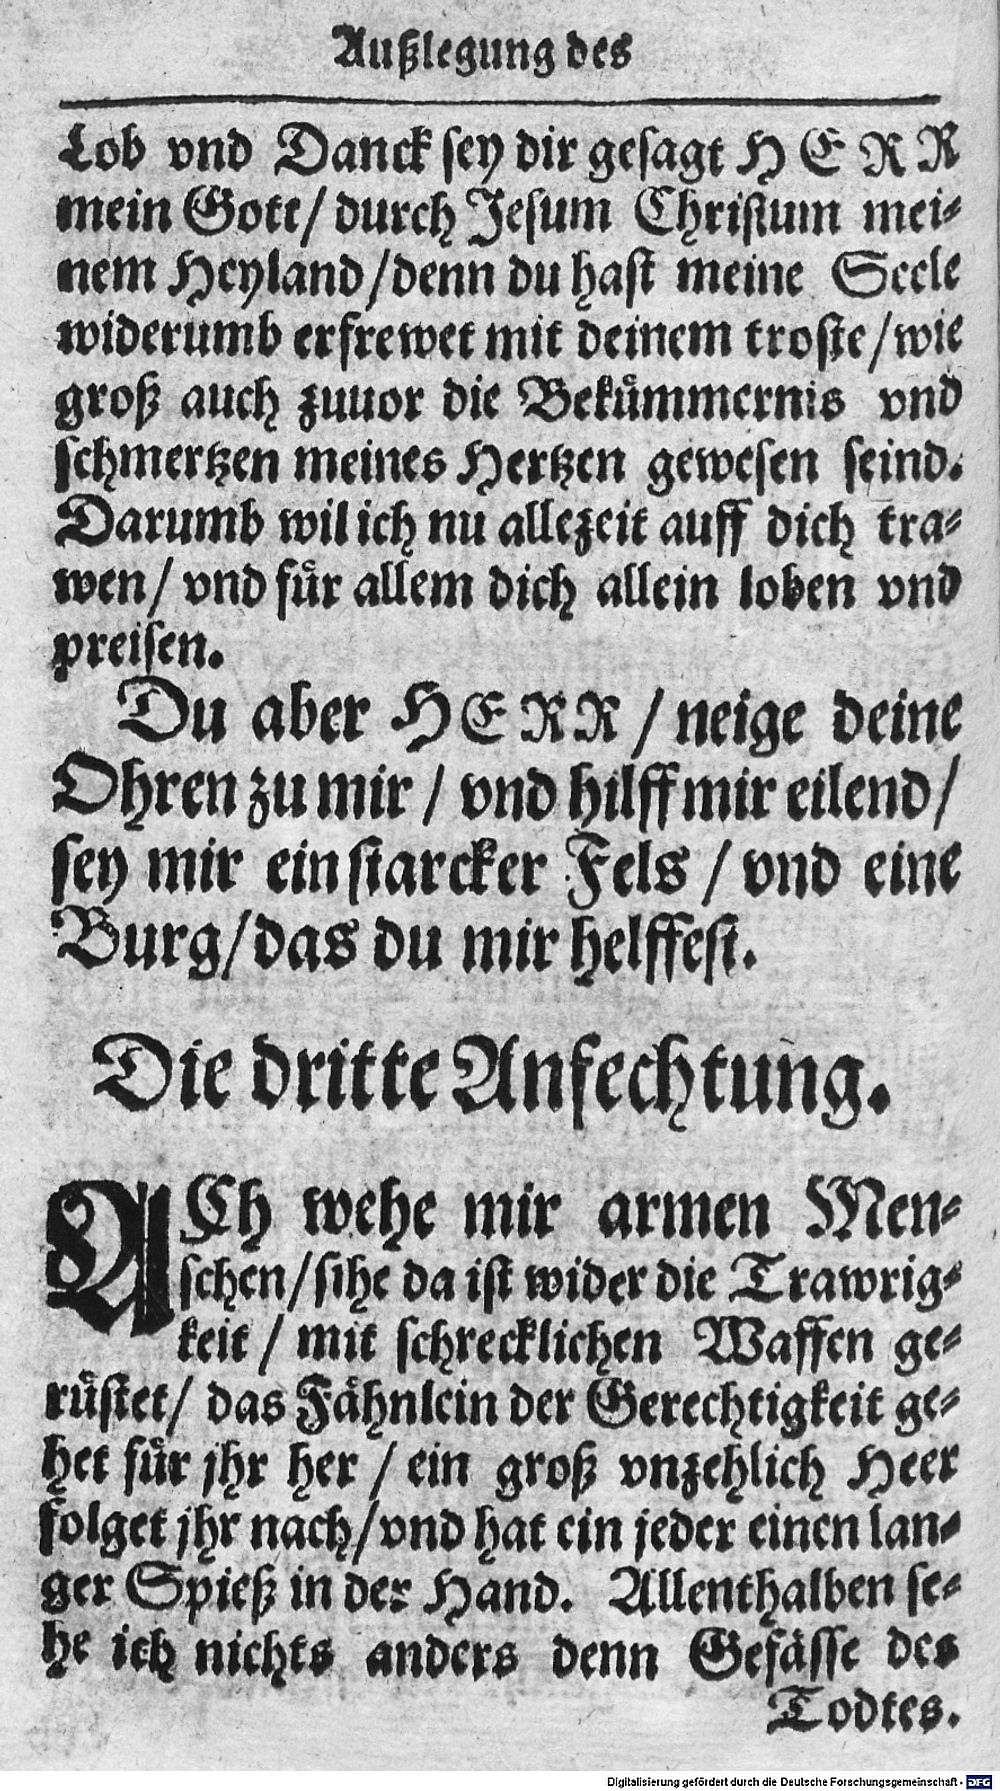 Außlegung des
Lob vnd Danck sey dir gesagt HERR
mein Gott/ durch Jesum Christum mei-
nem Heyland/denn du hast meine Seele
widerumb erfrewet mit deinem troste/wie
groß auch zuuor die Bekům̃ernis vnd
schmertzen meines Hertzen gewesen seind.
Darumb wil ich nu allezeit auff dich tra-
wen/ vnd fůr allem dich allein loben vnd
preisen.
Du aber HERR / neige deine
Ohren zu mir / vnd hilff mir eilend/
sey mir ein starcker Fels / vnd eine
Burg/das du mir helffest.
Die dritte Anfechtung.
ACh wehe mir armen Men-
schen/sihe da ist wider die Trawrig-
keit / mit schrecklichen Waffen ge-
růstet/ das Fähnlein der Gerechtigkeit ge-
het fůr jhr her / ein groß vnzehlich Heer
folget jhr nach/vnd hat ein jeder einen lan-
ger Spieß in der Hand. Allenthalben se-
he ich nichts anders denn Gefässe des
Todtes.
Digitalisierung gefördert durch die Deutsche Forschungsgemeinschaft - DFG